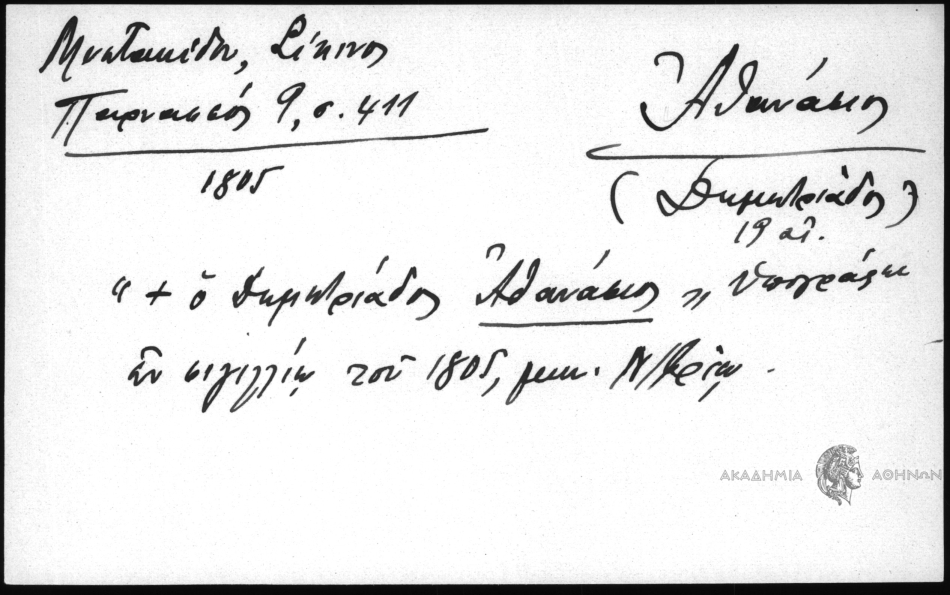 Μηλιαράκη, Σίκινος
Παρνασσός 9, σ. 411
1805
Ἀθανάσιος
(Δημητριάδος)
19 αἰ.
" + ὁ Δημητριάδος Ἀθανάσιος " ὑπογράφει
ἐν σιγιλλίῳ τοῦ 1805, μην. Ν/βρίῳ.
ΑΚΑΔΗΜΙΑ ΑΘΗΝΩΝ